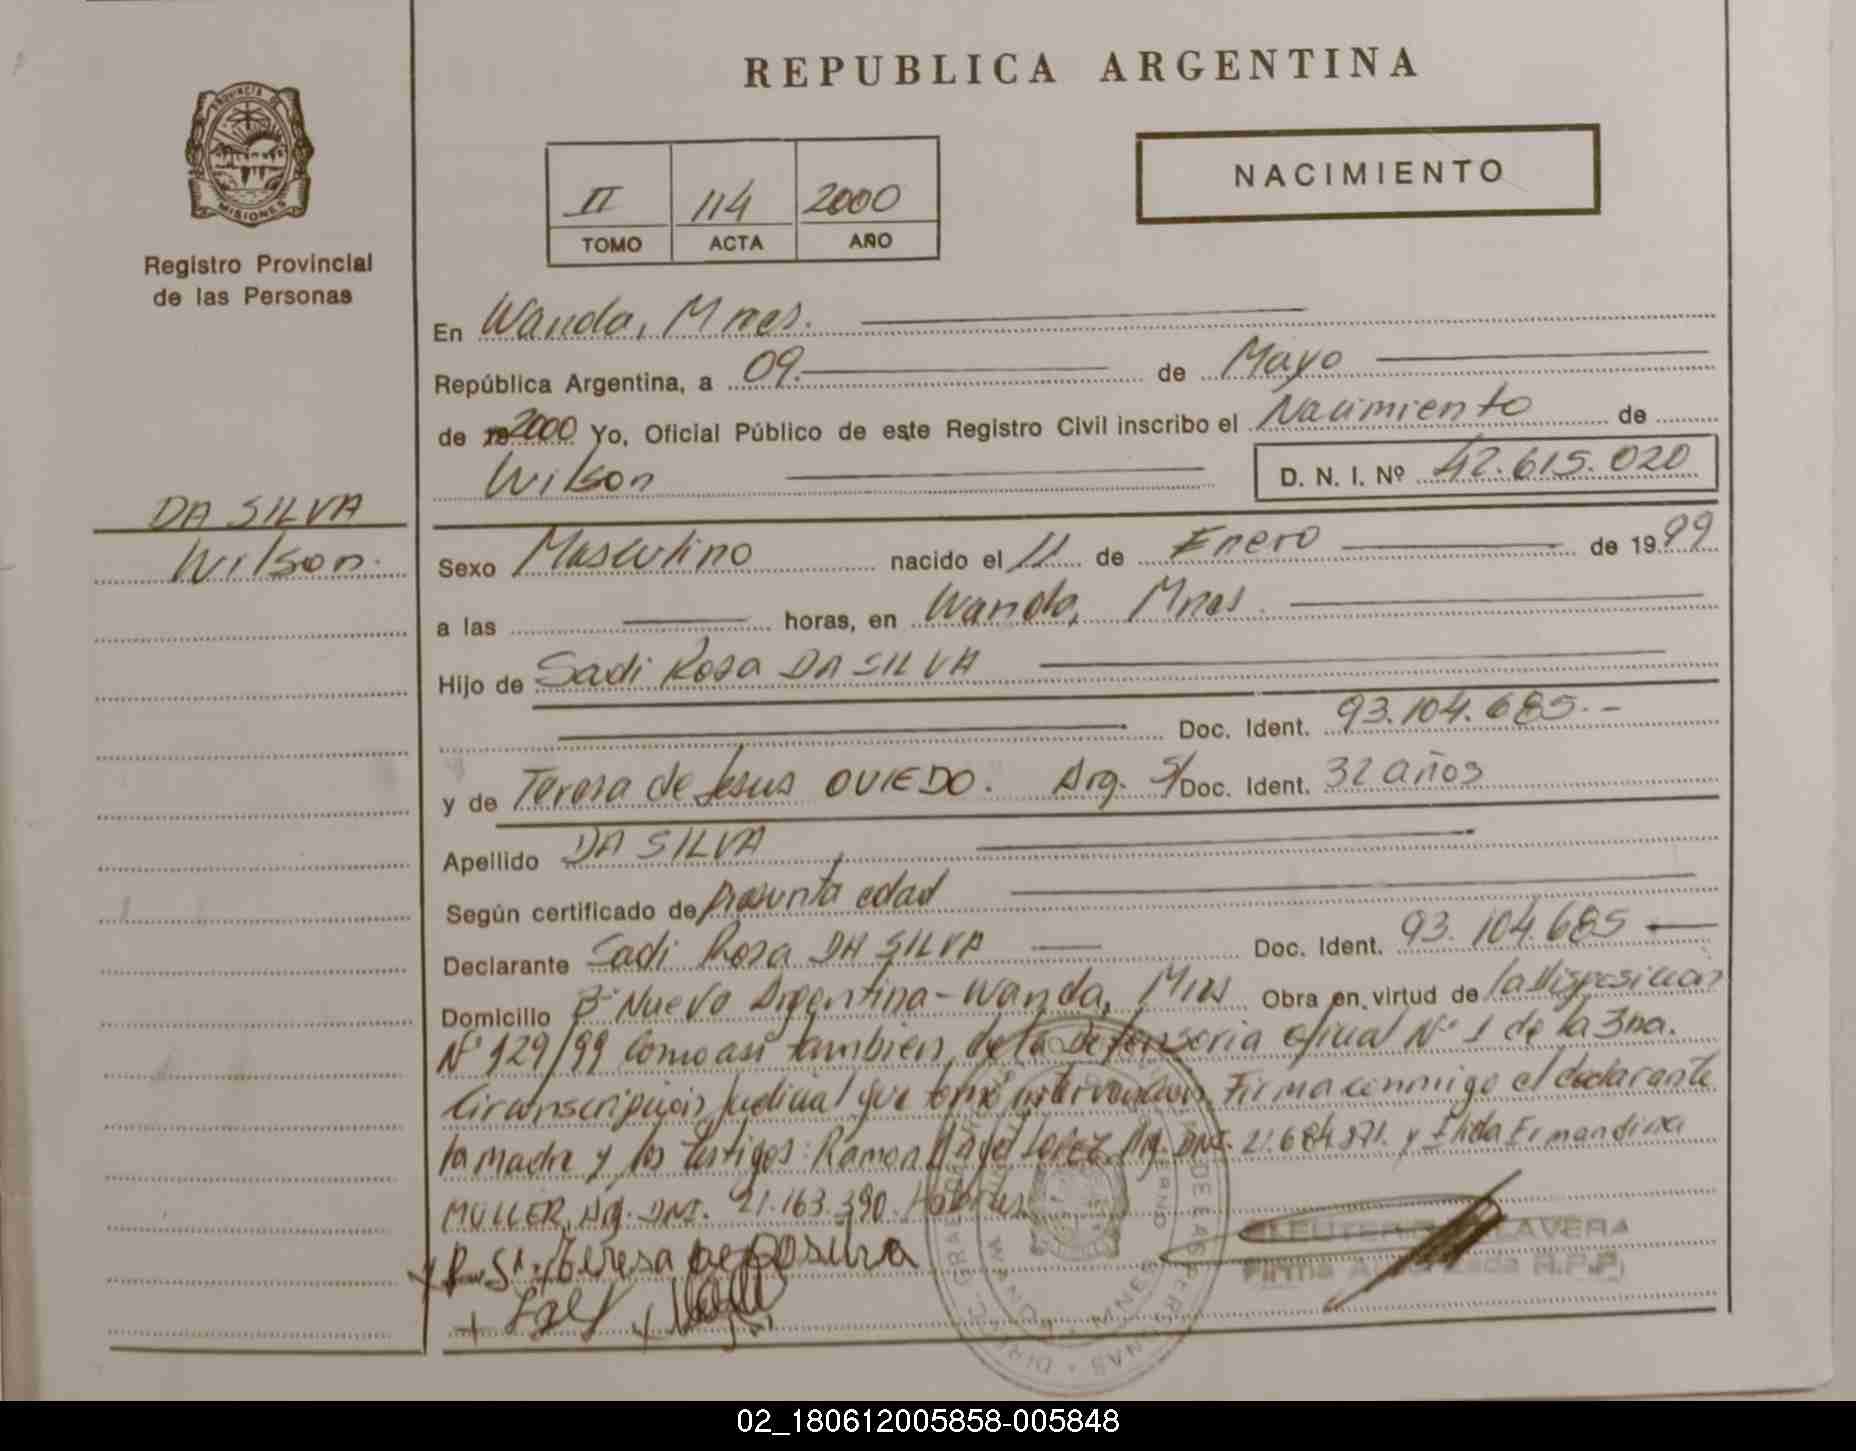 REPUBLICA ARGENTINA
PROVINCIA DE
MISIONES
Registro Provincial
de las Personas
II 114 2000
TOMO ACTA AÑO
NACIMIENTO
En Wanda, Mnes.
República Argentina, a 09. de Mayo
de 2000 Yo, Oficial Público de este Registro Civil inscribo el Nacimiento de
Wilson D. N. I. Nº 42.615.020
DA SILVA
Wilson.
Sexo Masculino nacido el 11 de Enero de 1999
a las horas, en Wanda, Mnes.
Hijo de Sadi Rosa DA SILVA
Doc. Ident. 93.104.685.-
y de Teresa de Jesus OVIEDO. Arg. S/ Doc. Ident. 32 años
Apellido DA SILVA
Según certificado de presunta edad
Declarante Sadi Rosa DA SILVA Doc. Ident. 93.104.685
Domicilio Bº Nuevo Argentina - Wanda, Mnes Obra en virtud de la disposicion
Nº 129/99 como asi tambien de la Defensoria oficial Nº 1 de la 3ra.
Circunscripcion Judicial que tomó intervencion. Firma conmigo el declarante
la madre y los testigos: Ramon Lopez Arg. DNI. 21.684.871. y
MULLER, Arg. DNI. 21.163.390.
Teresa
LAVERA
Firma Autorizada R.P.P.
02_180612005858-005848